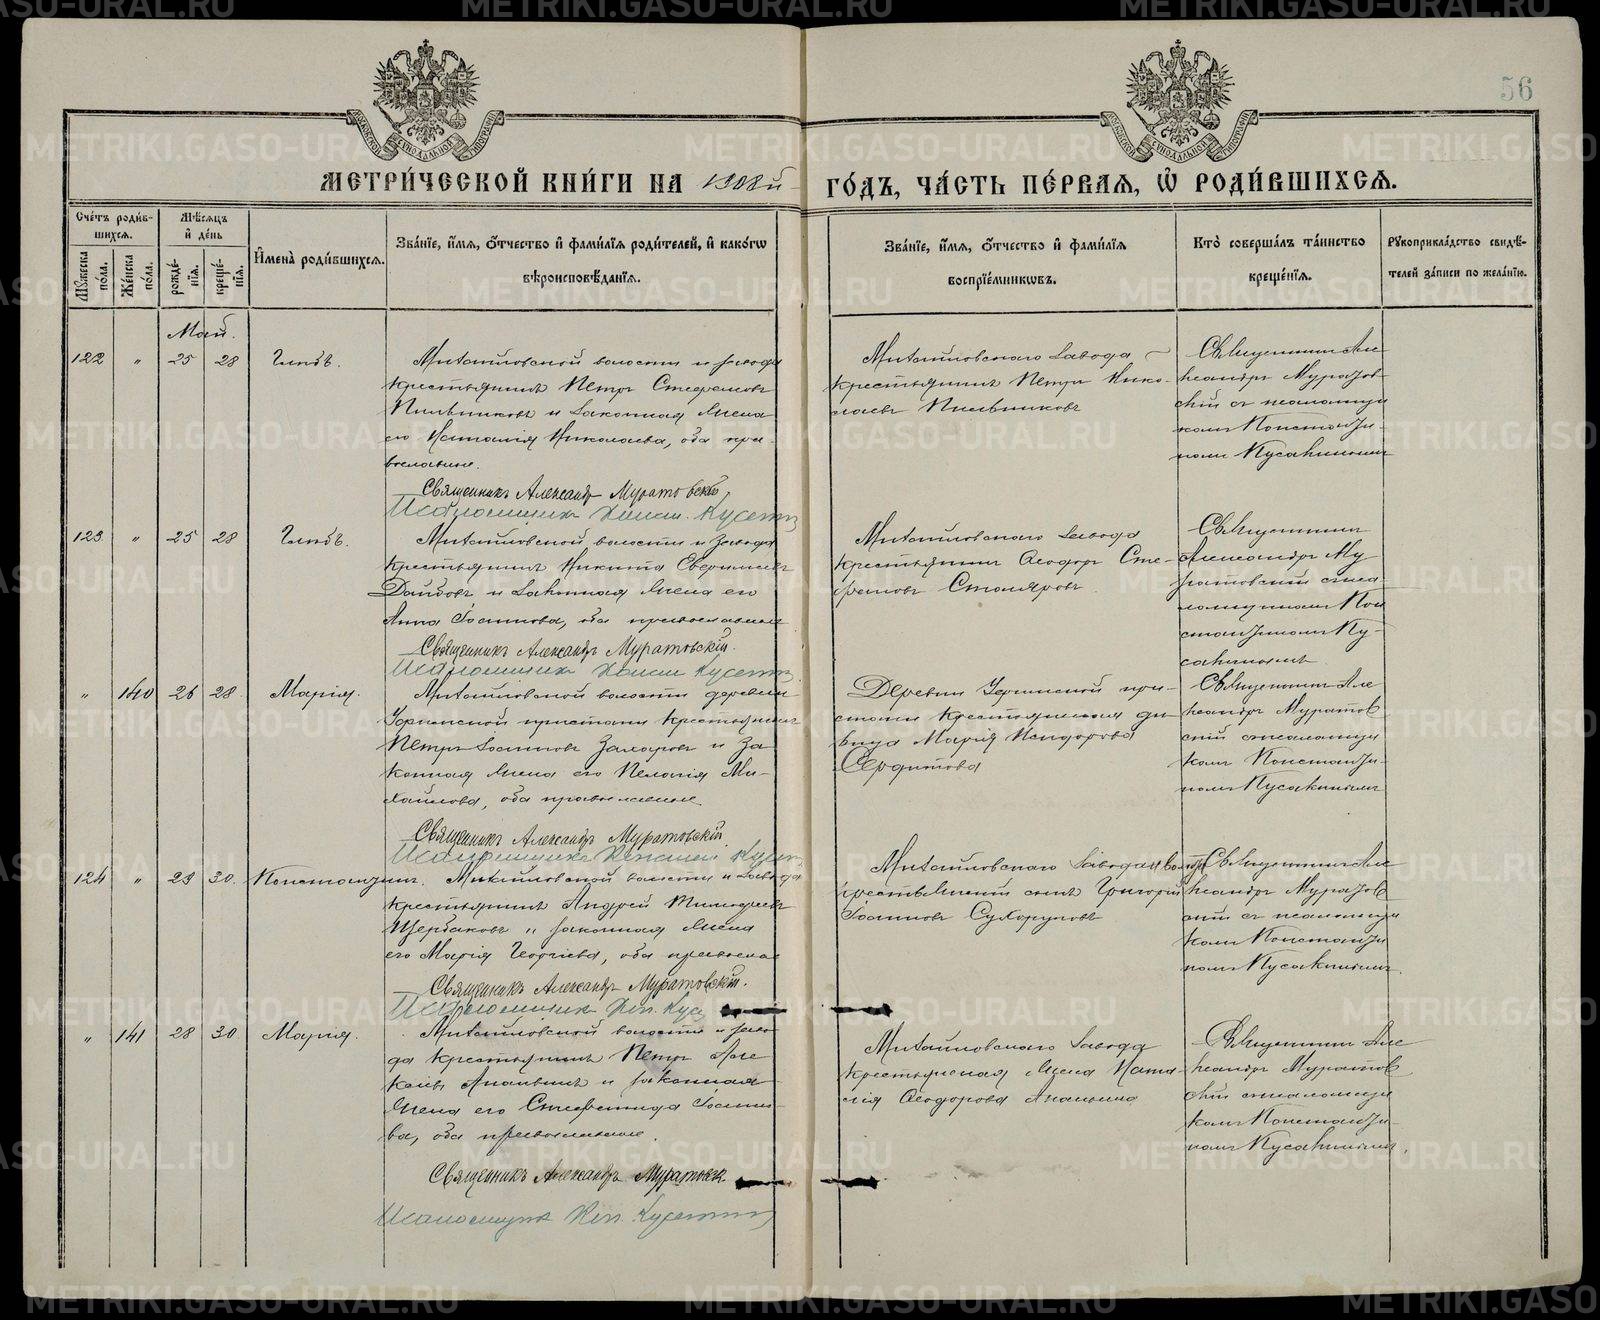 56
МЕТРИ́ЧЕСКОЙ КНИ́ГИ НА 1908й ГО́ДЪ, ЧА́СТЬ ПЕ́РВАЯ, Ѡ҆ РОДИ́ВШИХСЯ.
Сче́тъ роди́вшихся.
Му́жеска по́ла.
Же́нска по́ла.
Мѣ́сяцъ и҆ де́нь
рожде́нїя.
креще́нїя.
И҆мена̀ роди́вшихся.
Зва́нїе, и҆́мя, ѻ҆́тчество и҆ фами́лїя роди́телей, и҆ како́гѡ
вѣроисповѣ́данїя.
Зва́нїе, и҆́мя, ѻ҆́тчество и҆ фами́лїя
воспрїе́мникѡвъ.
Кто̀ соверша́лъ та́инство
креще́нїя.
Рꙋкоприкла́дство свидѣ́-
телей за́писи по жела́нїю.
Май.
122 " 25 28 Глѣбъ.
Михайловской волости и завода
крестьянинъ Петръ Стефановъ
Пильниковъ и законная жена
его Наталія Николаева, оба пра-
вославные.
Священникъ Александръ Муратовскій
Псаломщикъ
Михайловскаго завода
крестьянинъ Петръ Нико-
лаевъ Пильниковъ
Священникъ Але-
ксандръ Муратов-
скій съ псаломщи-
комъ Константи-
номъ Кусакинымъ
123 " 25 28 Глѣбъ.
Михайловской волости и завода
крестьянинъ Никита
и законная жена его
Анна Іоаннова, оба православные
Священникъ Александръ Муратовскій.
Псаломщикъ
Михайловскаго завода
крестьянинъ Ѳеодоръ Сте-
фановъ Столяровъ
Священникъ
Александръ Му-
ратовскій съ пса-
ломщикомъ Кон-
стантиномъ Ку-
сакинымъ
" 140 26 28 Марія.
Михайловской волости деревни
пристани крестьянинъ
Петръ Іоанновъ Захаровъ и за-
конная жена его Пелагія Ми-
хайлова, оба православные
Священникъ Александръ Муратовскій
Псаломщикъ
Деревни при-
стани крестьянская дѣ-
вица Марія Исидорова
Священникъ Але-
ксандръ Муратов-
скій съ псаломщи-
комъ Константи-
номъ Кусакинымъ
124 " 29 30. Константинъ.
Михайловской волости и завода
крестьянинъ Андрей
Щербаковъ и законная жена
его Марія Георгіева, оба правосла
Священникъ Александръ Муратовскій.
Псаломщикъ
Михайловскаго завода
крестьянскій сынъ Григорій
Іоанновъ Сухоруковъ
Священникъ Але-
ксандръ Муратов-
скій съ псаломщи-
комъ Константи-
номъ Кусакинымъ.
" 141 28 30. Марія.
Михайловской волости и заво-
да крестьянинъ Петръ Але-
Ананьинъ и законная
жена его Степанида Іоанно-
ва, оба православные.
Священникъ Александръ Муратовск
Псаломщикъ
Михайловскаго завода
крестьянская жена Ната-
лія Ѳеодорова Ананьина
Священникъ Але-
ксандръ Муратов-
скій съ псаломщи-
комъ Константи-
номъ Кусакинымъ.
METRIKI.GASO-URAL.RU